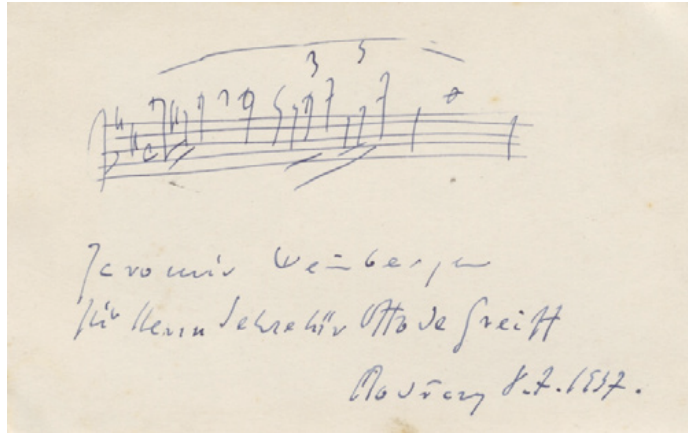 3 5
Jaromir Weinberger
für Herrn Sekretär Otto de Greiff
8.7.1937.